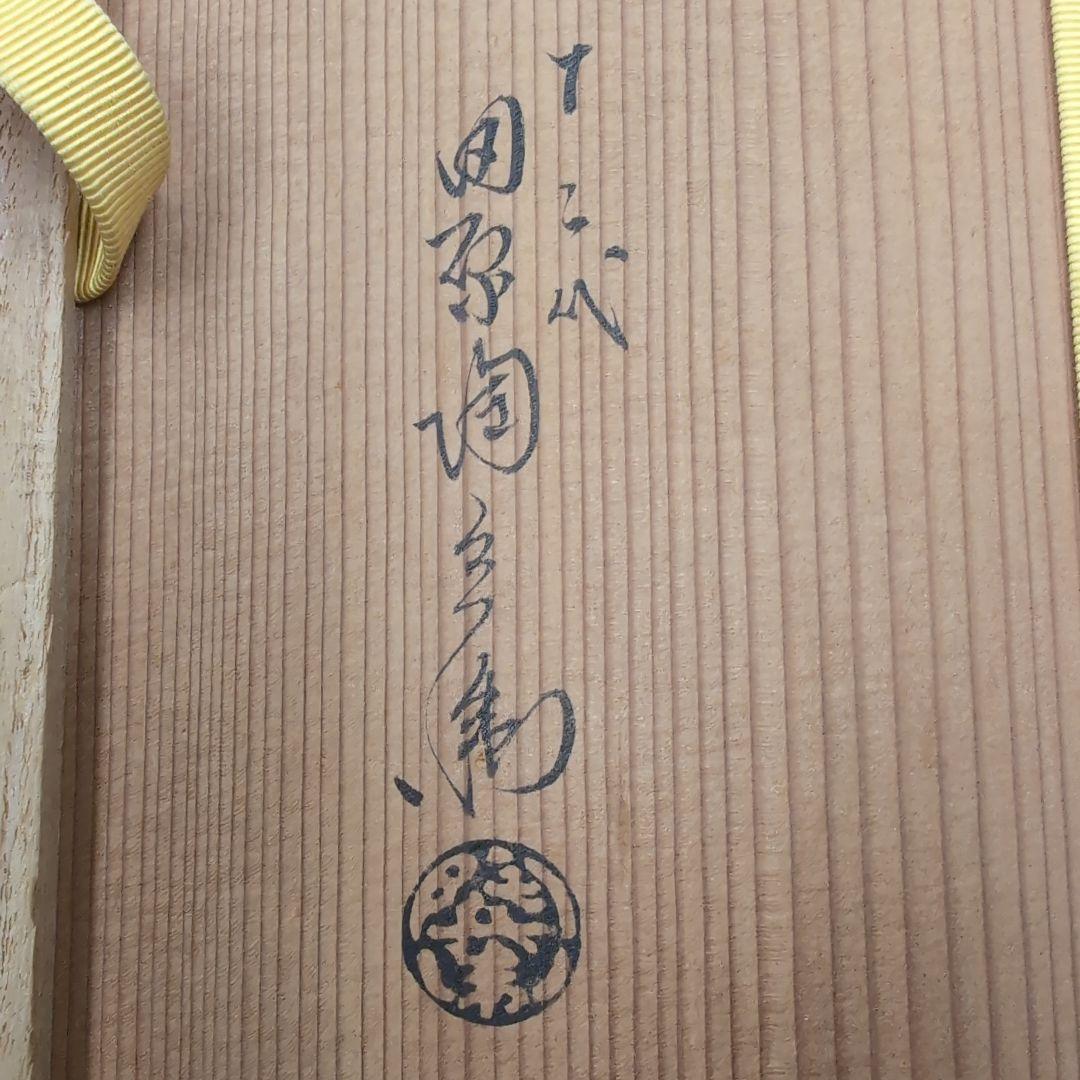 十二代
田原陶兵衛